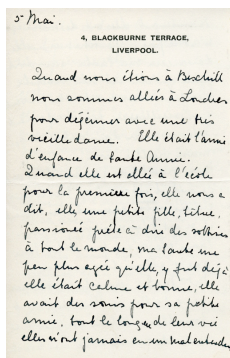 5 Mai.
4, BLACKBURNE TERRACE,
LIVERPOOL.
Quand nous étions à Bexhill
nous sommes allées à Londres
pour déjeuner avec une très
vieille dame. Elle était l'amie
d'enfance de tante Annie.
Quand elle est allée à l'école
pour la première fois, elle nous a
dit, elle, une petite fille, têtue,
passionée prête à dire des sottises
à tout le monde, ma tante un
peu plus agée qu'elle, y fut déjà
elle était calme et bonne, elle
avait des soins pour sa petite
amie, tout le long de leur vie
elles n'ont jamais eu un mal entendu